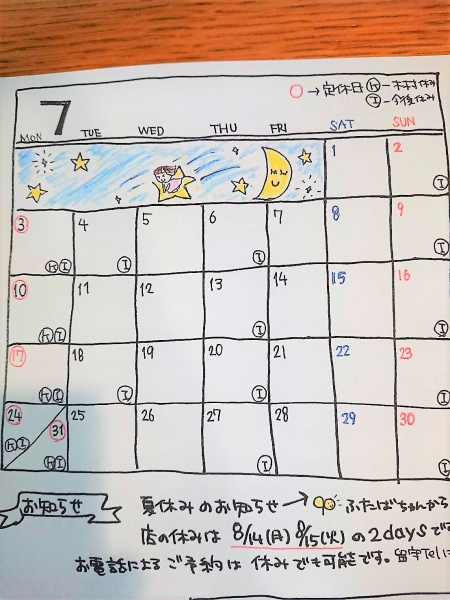 ○→定休日 Ⓚ-木村休み
Ⓘ-今後休み
7
MON TUE WED THU FRI SAT SUN
1 2
Ⓘ
3 4 5 6 7 8 9
ⓀⒾ Ⓘ Ⓘ Ⓘ
10 11 12 13 14 15 16
ⓀⒾ Ⓘ Ⓘ
17 18 19 20 21 22 23
ⓀⒾ Ⓘ Ⓘ Ⓘ
24 31 25 26 27 28 29 30
ⓀⒾ ⓀⒾ Ⓘ Ⓘ
お知らせ
夏休みのお知らせ→ふたばちゃんから
店の休みは 8/14(月) 8/15(火) の2daysです
お電話によるご予約は休みでも可能です。留守Telに